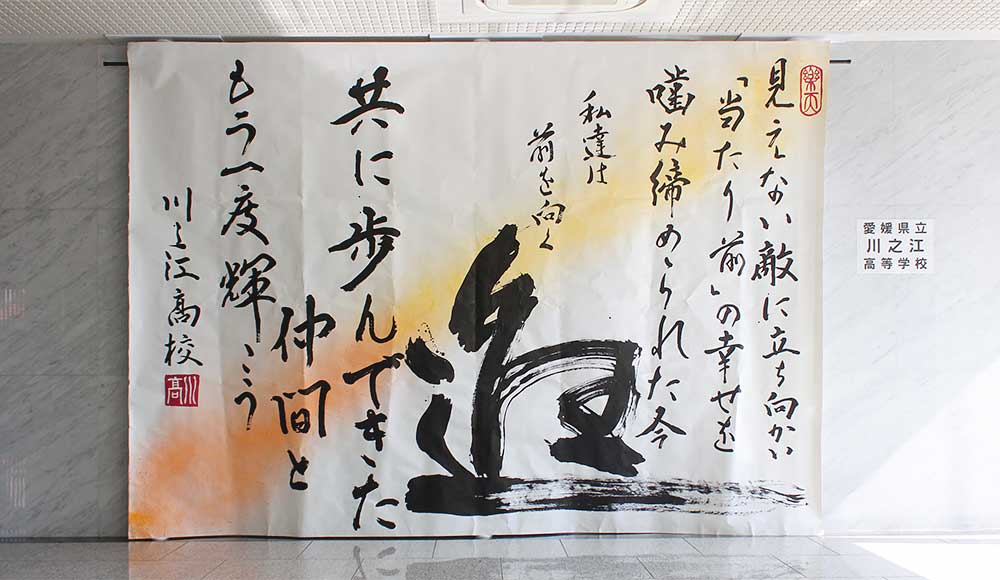 見えない敵に立ち向かい
「当たり前」の幸せを
噛み締められた今
私達は
前を向く
追
共に歩んできた
仲間と
もう一度輝こう
川之江高校
川高
愛媛県立
川之江
高等学校